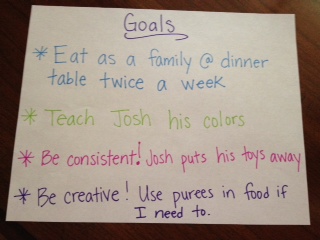 Goals
* Eat as a family @ dinner
table twice a week
* Teach Josh his colors
* Be consistent! Josh puts his toys away
* Be creative! Use purees in food if
I need to.